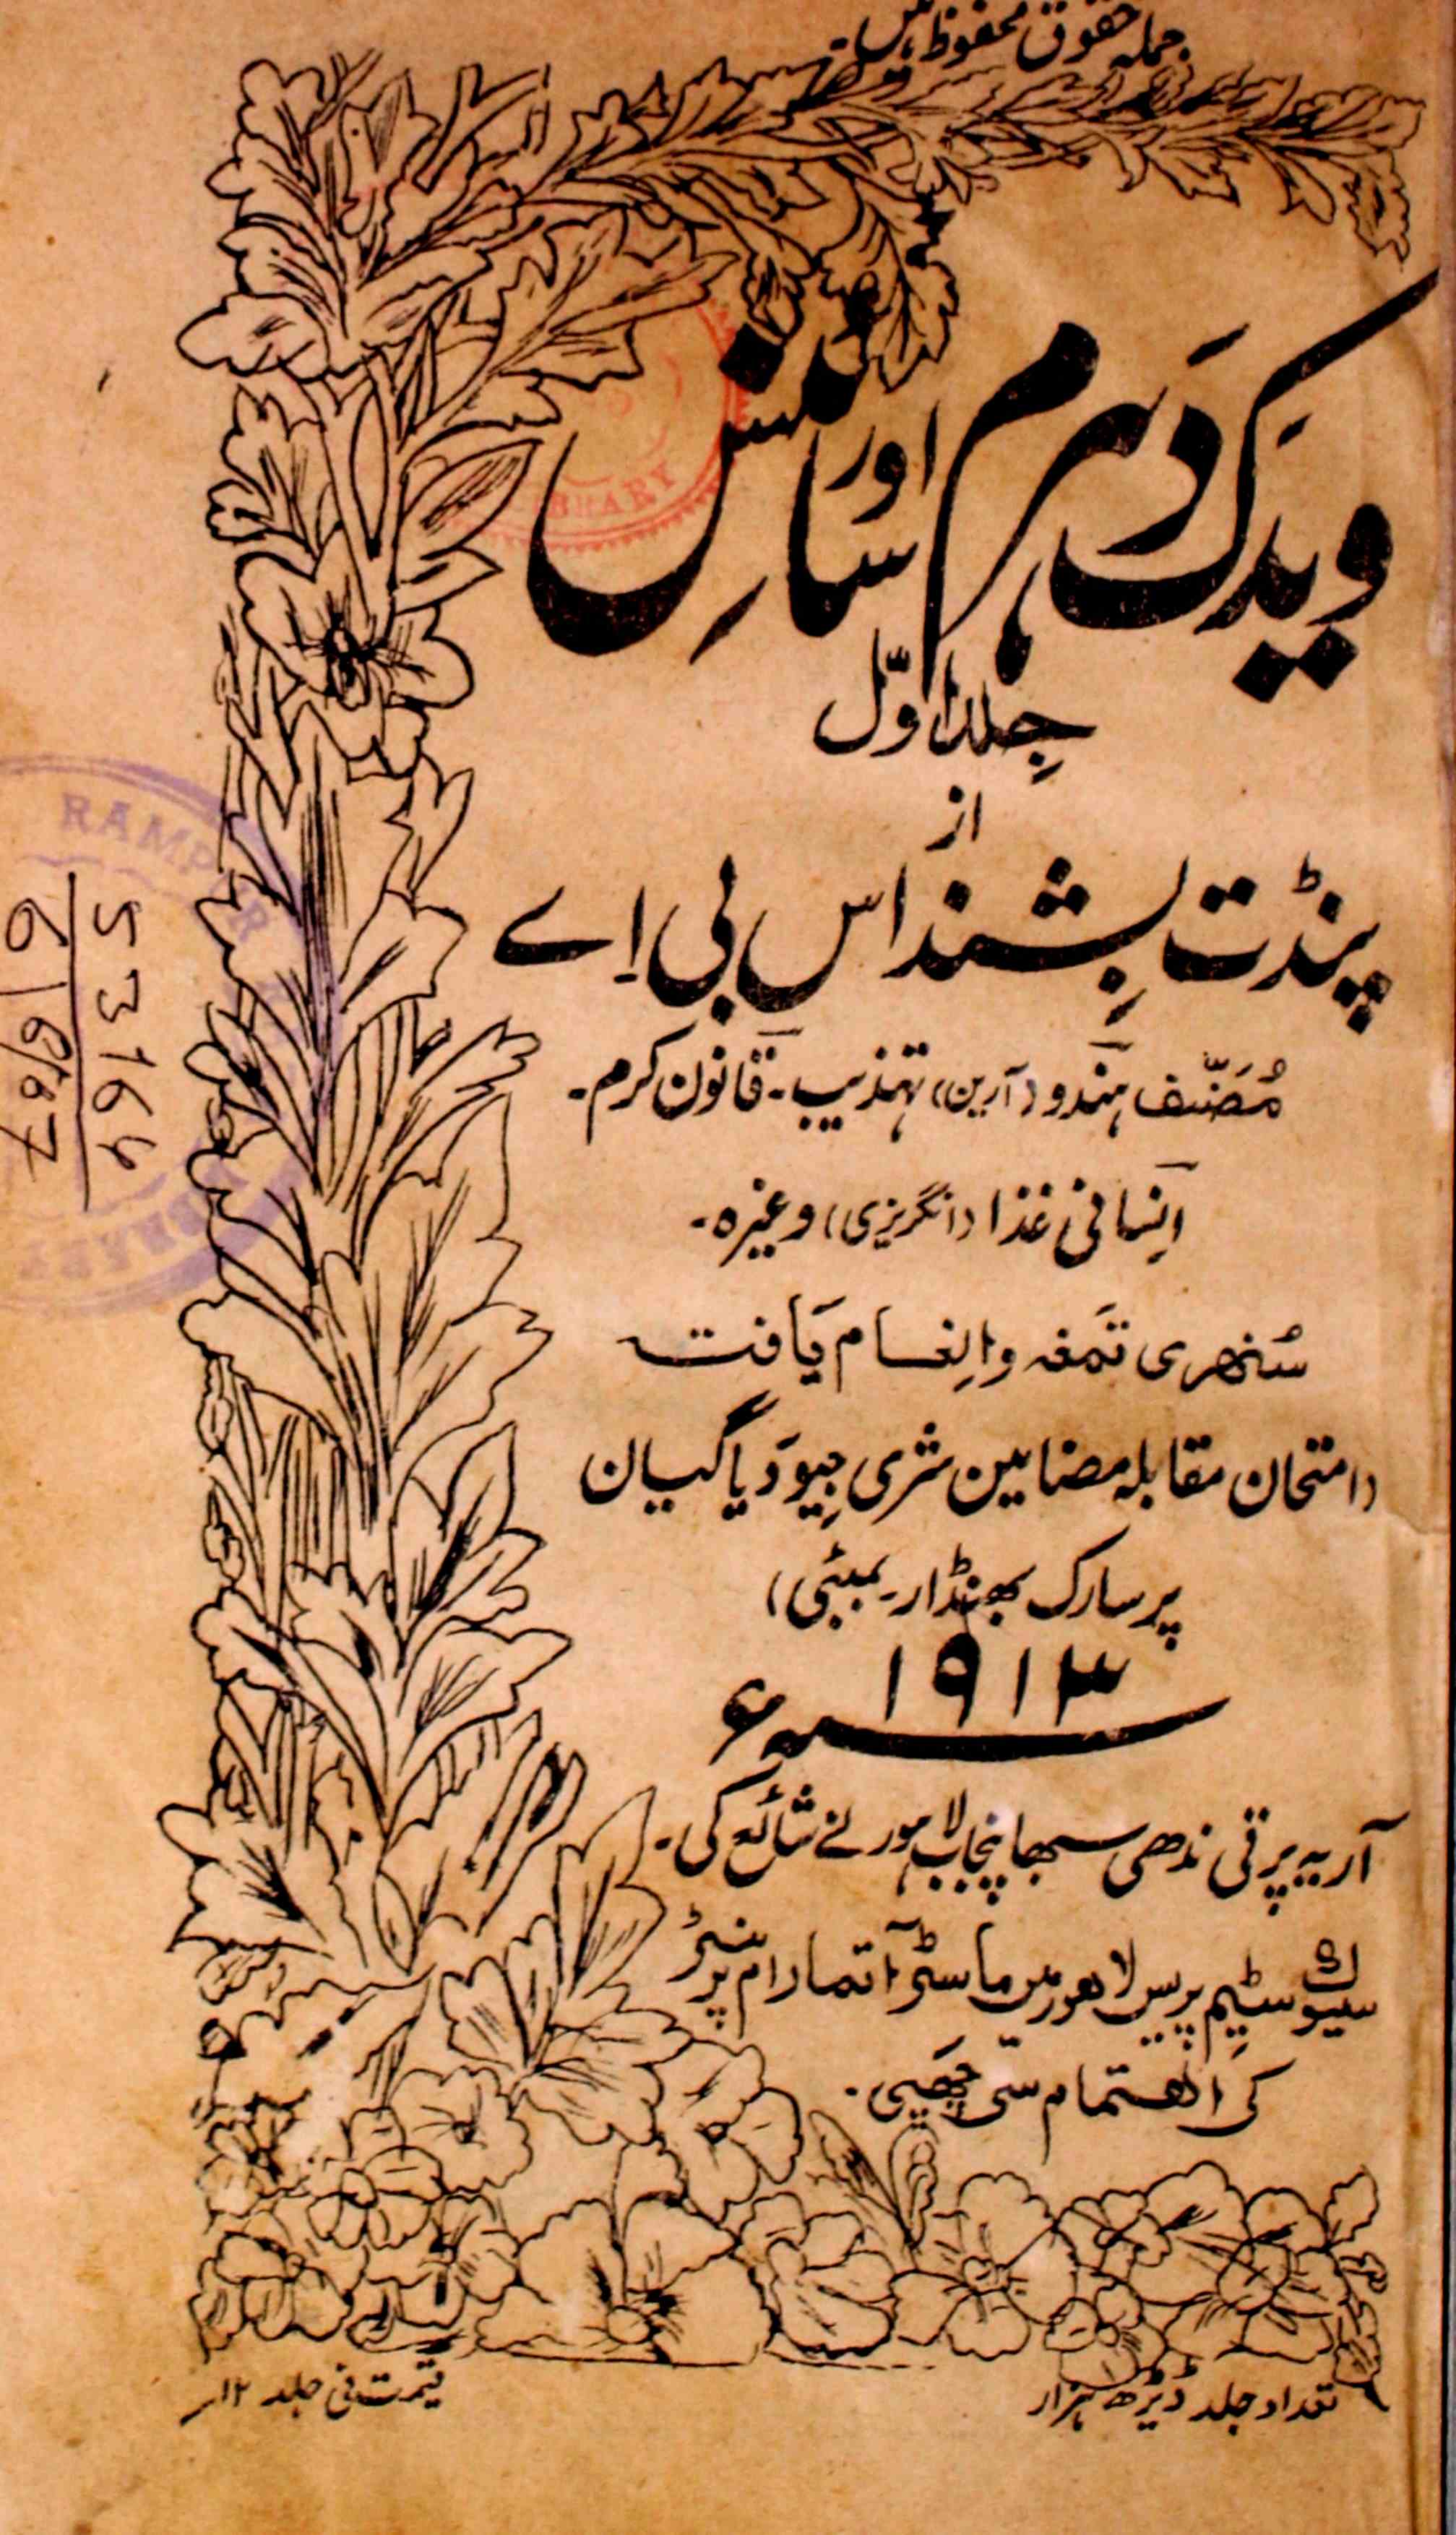 جملہ حقوق محفوظ ہیں۔
ویدک دہرم اور سائنس
جلد اوّل
از
پنڈت بشنداس بی اے
مُصَنّف ہندو (آرین) تہذیب۔ قانون کرم۔
اِنسانی غذا (انگریزی) وغیرہ۔
سُنھری تمغہ و اِنعام یافتہ
(امتحان مقابلہ مضامین شری جیو دَیا گیان
پرسارک بھنڈار۔ بمبئی)
۱۹۱۳ء
آریہ پرتی ندھی سبھا پنجاب لاہور نے شائع کی۔
سیوک سٹیم پریس لاھور میں ماسٹر آتمارام پرنٹر
کے اھتمام سے چھپی۔
تعداد جلد ڈیڑھ ہزار
قیمت فی جلد ۱۲؍
RAMPUR
LIBRARY
LIBRARY
53164